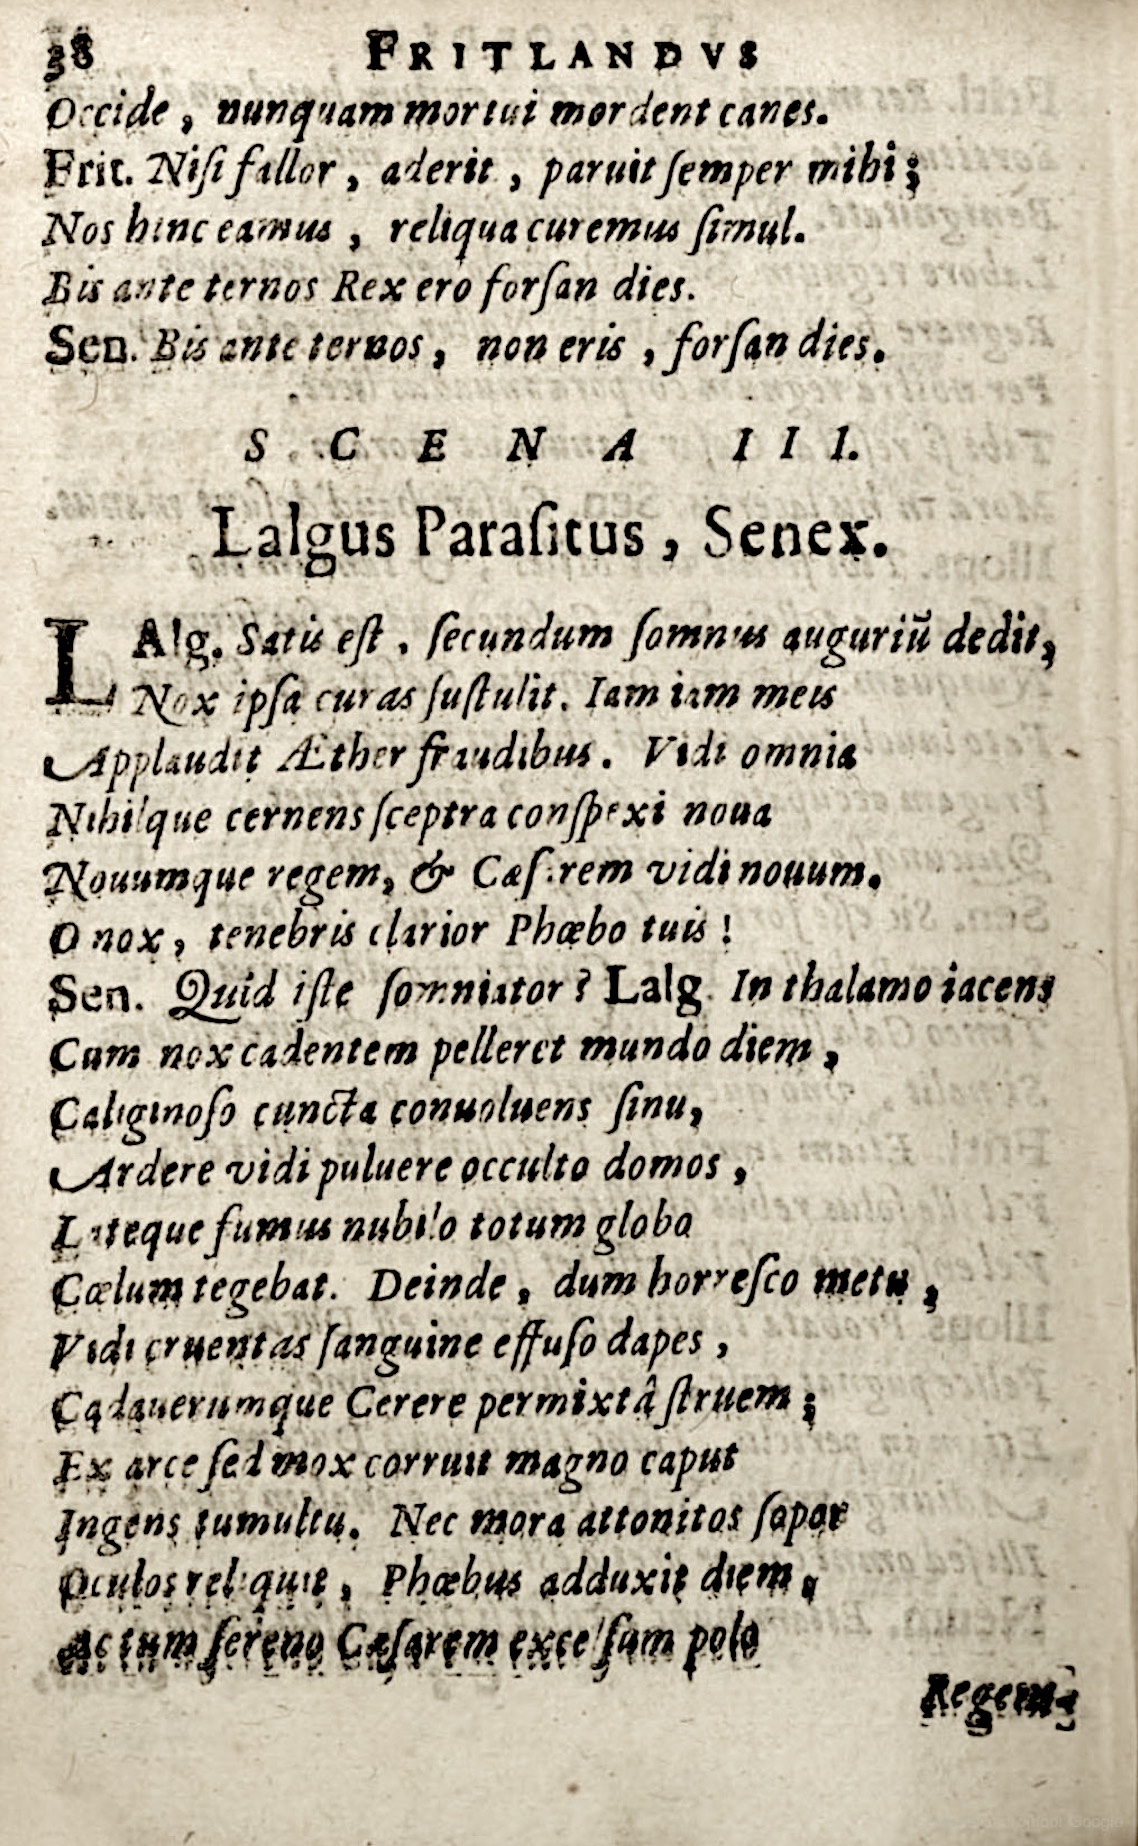 38 FRITLANDVS
Occide, nunquam mortui mordent canes.
Frit. Niſi fallor, aderit, paruit ſemper mihi;
Nos hinc eamus, reliqua curemus ſimul.
Bis ante ternos Rex ero forſan dies.
Sen. Bis ante ternos, non eris, forſan dies.
SCENA III.
Lalgus Paraſitus, Senex.
LAlg. Satis eſt, ſecundum ſomnus auguriū dedit,
Nox ipſa curas ſuſtulit. Iam iam meis
Applaudit Æther fraudibus. Vidi omnia
Nihilque cernens ſceptra conſpexi noua
Nouumque regem, & Cæſarem vidi nouum.
O nox, tenebris clarior Phœbo tuis!
Sen. Quid iſte ſomniator? Lalg. In thalamo iacens
Cum nox cadentem pelleret mundo diem,
Caliginoſo cuncta conuoluens ſinu,
Ardere vidi puluere occulto domos,
Lateque fumus nubilo totum globo
Cœlum tegebat. Deinde, dum horreſco metu,
Vidi cruentas ſanguine effuſo dapes,
Cadauerumque Cerere permixtâ ſtruem;
Ex arce ſed mox corruit magno caput
Ingens tumultu. Nec mora attonitos ſopor
Oculos reliquit, Phœbus adduxit diem,
Ac tum ſereno Cæſarem excelſum polo
Regem-